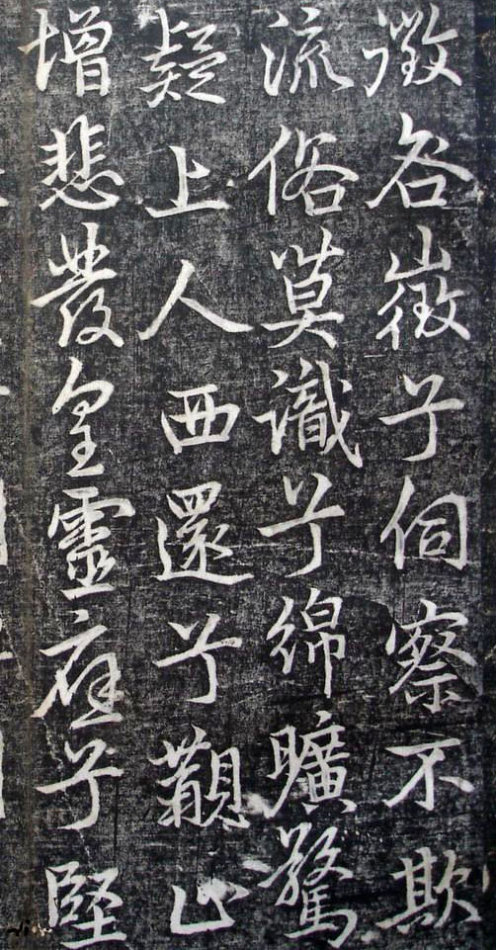 徵咎徵兮伺察不欺
流俗莫識兮綿曠驚
疑上人西還兮止
增悲發皇靈兮堅